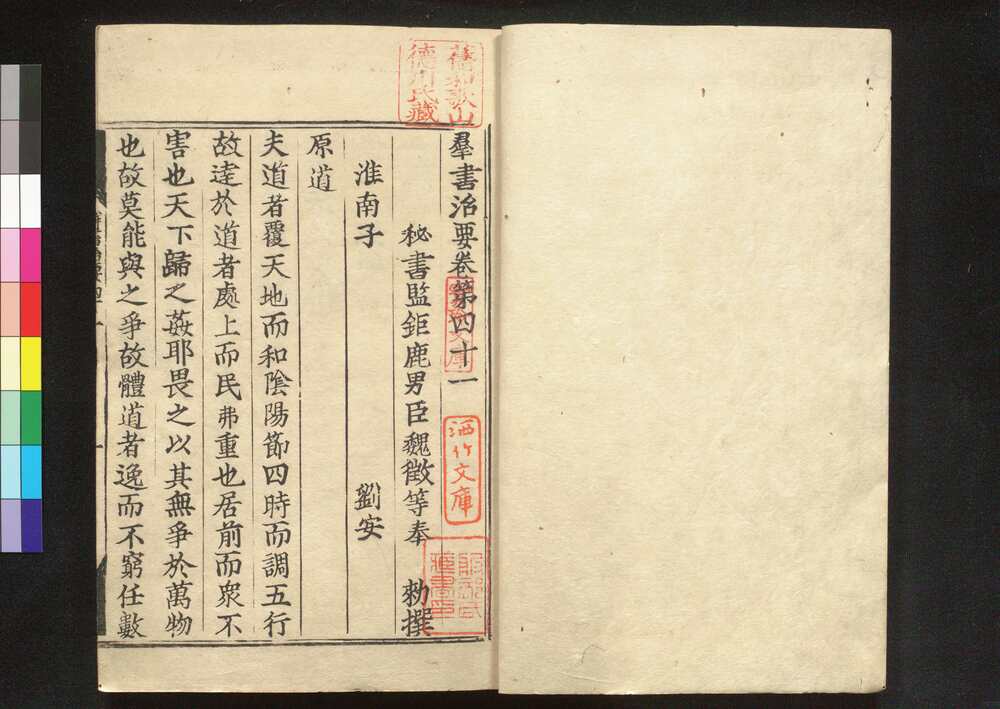 羣書治要卷第四十一
秘書監鉅鹿男臣魏徵等奉　勑撰
淮南子　劉安
原道
夫道者覆天地而和陰陽節四時而調五行
故逹於道者處上而民弗重也居前而衆不
害也天下歸之姦耶畏之以其無爭於萬物
也故莫能與之爭故體道者逸而不窮任數
舊和歌山
德川氏藏
洒竹文庫